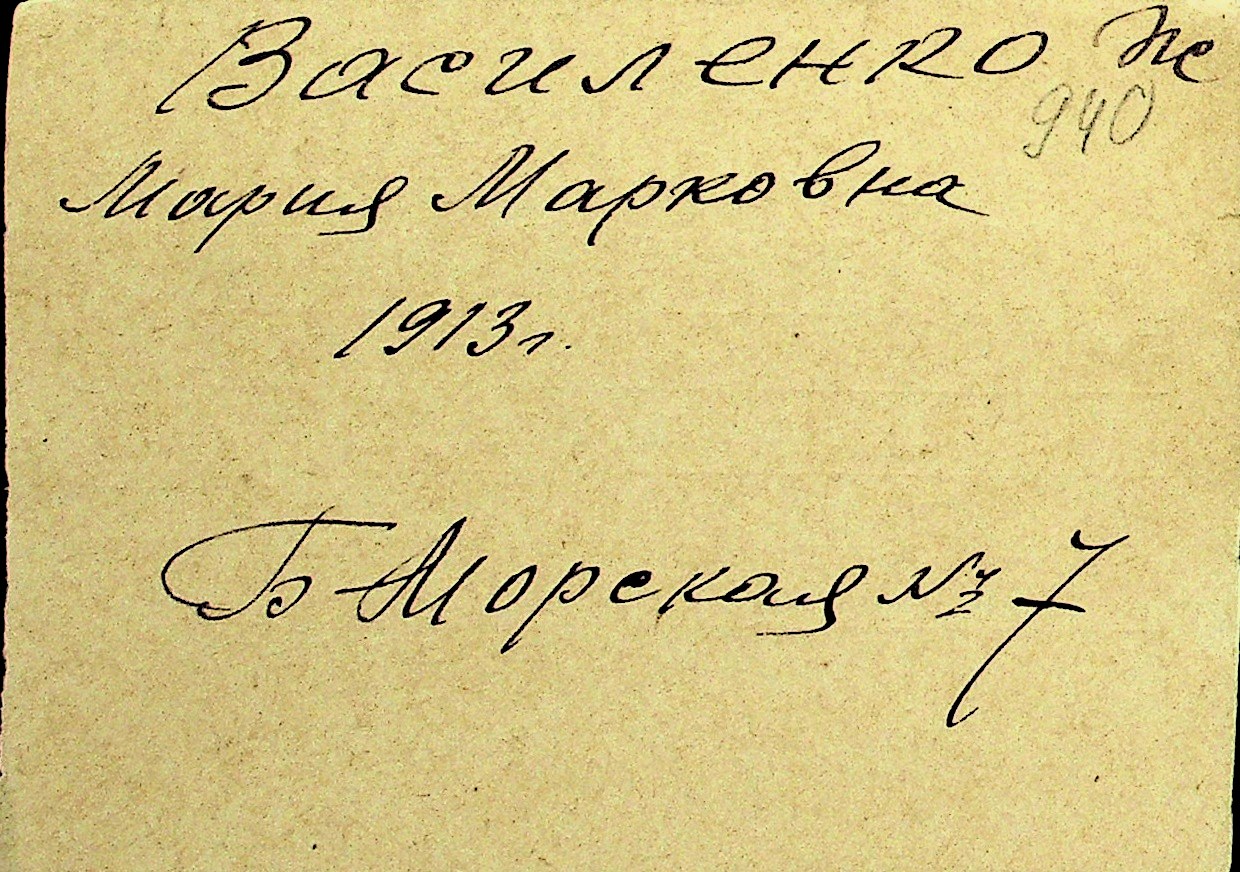 Василенко Ж
940
Мария Марковна
1913г.
Б-Морская № 7